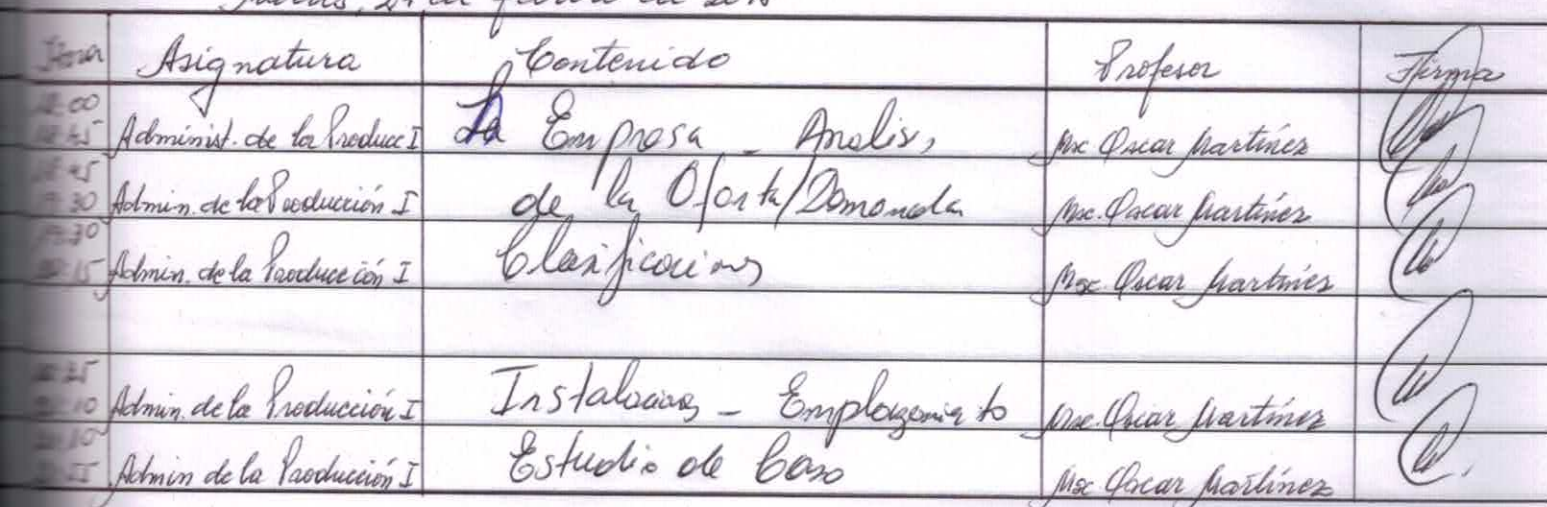 Hora Asignatura Contenido Profesor Firma
18:00
18:45 Administ. de la Producc I La Empresa - Analis, Msc Oscar Martínez
18:45
19:30 Admin. de la Producción I de la Oferta/Demanda Msc. Oscar Martínez
19:30
20:15 Admin. de la Producción I Clasificaciones Msc Oscar Martínez
Admin. de la Producción I Instalaciones - Emplazamiento Msc. Oscar Martínez
Admin de la Producción I Estudio de Caso Msc Oscar Martínez